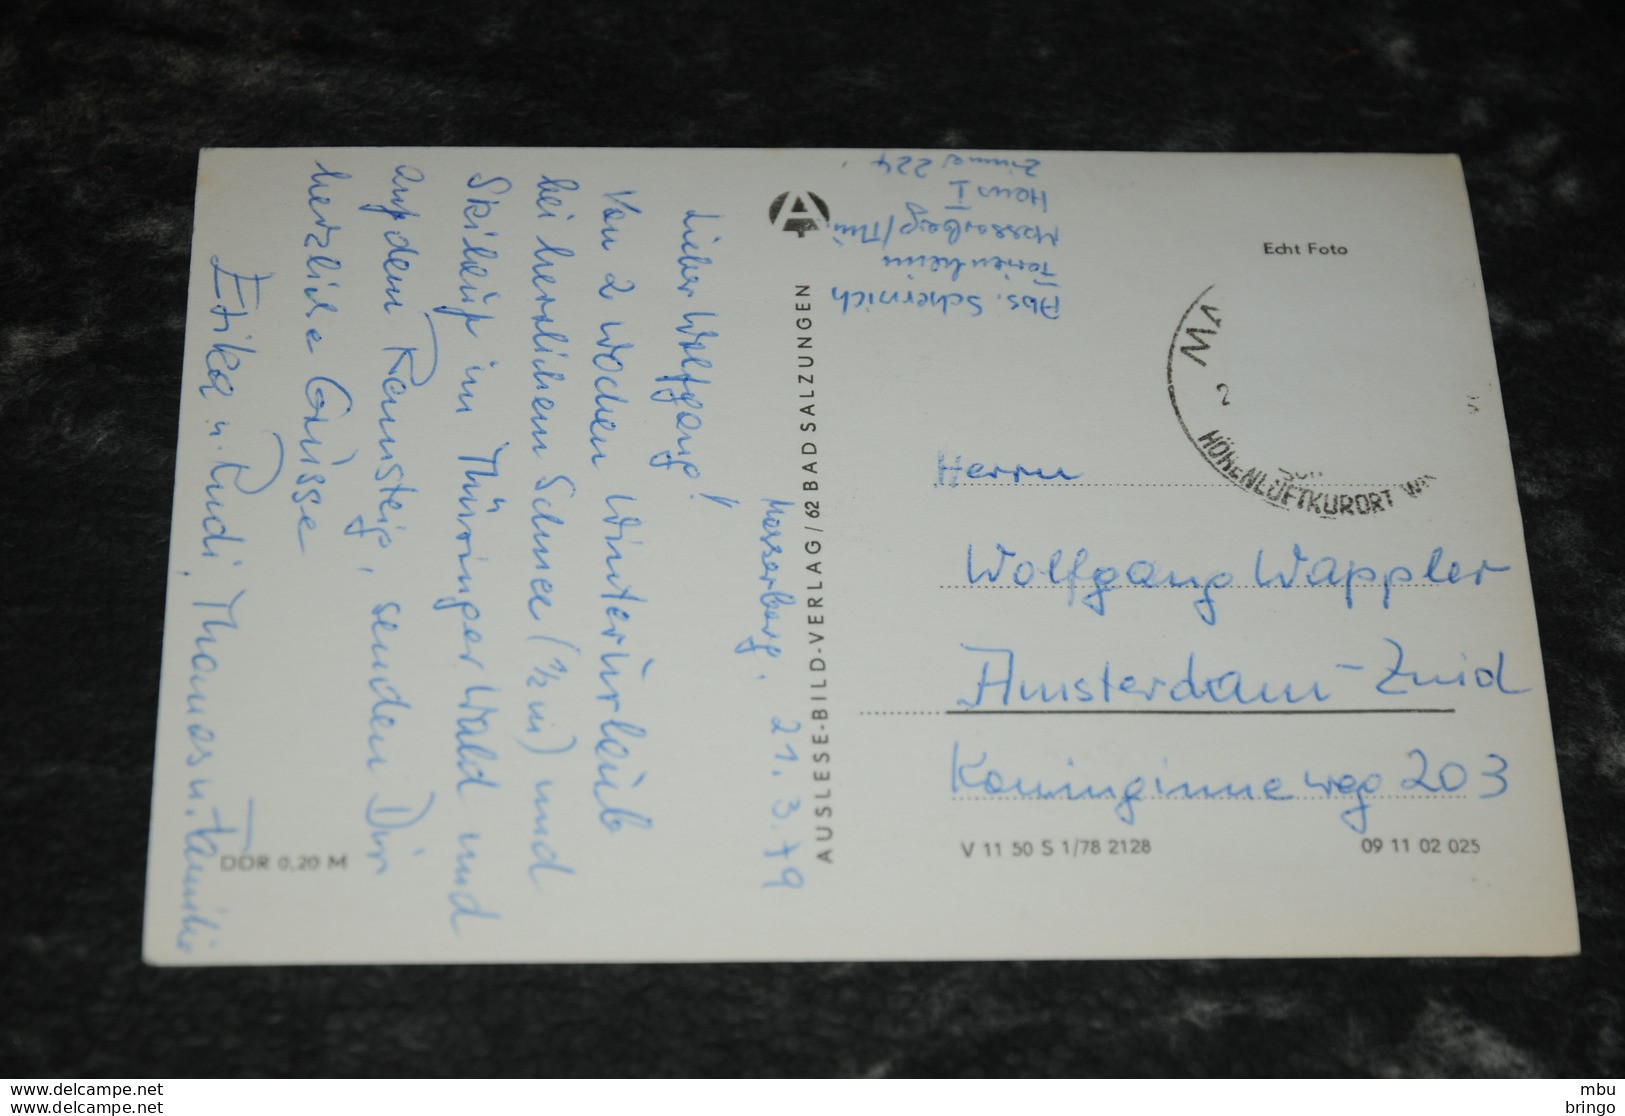 Masserberg, 21.3.79
Lieber Wolfgang!
Von 2 Wochen Winterurlaub
bei herrlichem Schnee (½ m) und
Skiläuf im Thüringer Wald und
auf dem Rennsteig, senden Dir
herzliche Grüsse
Erika u. Rudi, Thomas u. Familie
DDR 0,20 M
AUSLESE-BILD-VERLAG/62 BAD SALZUNGEN
A
Abs. Schernich
Ferienheim
Masserberg/Thür.
Haus I
Zimmer 224
Echt Foto
MA
2
HÖHENLUFTKURORT
Herrn
Wolfgang Wappler
Amsterdam-Zuid
Koninginneweg 203
V 11 50 S 1/78 2128
09 11 02 025
www.delcampe.net
www.delcampe.net
mbu
bringo